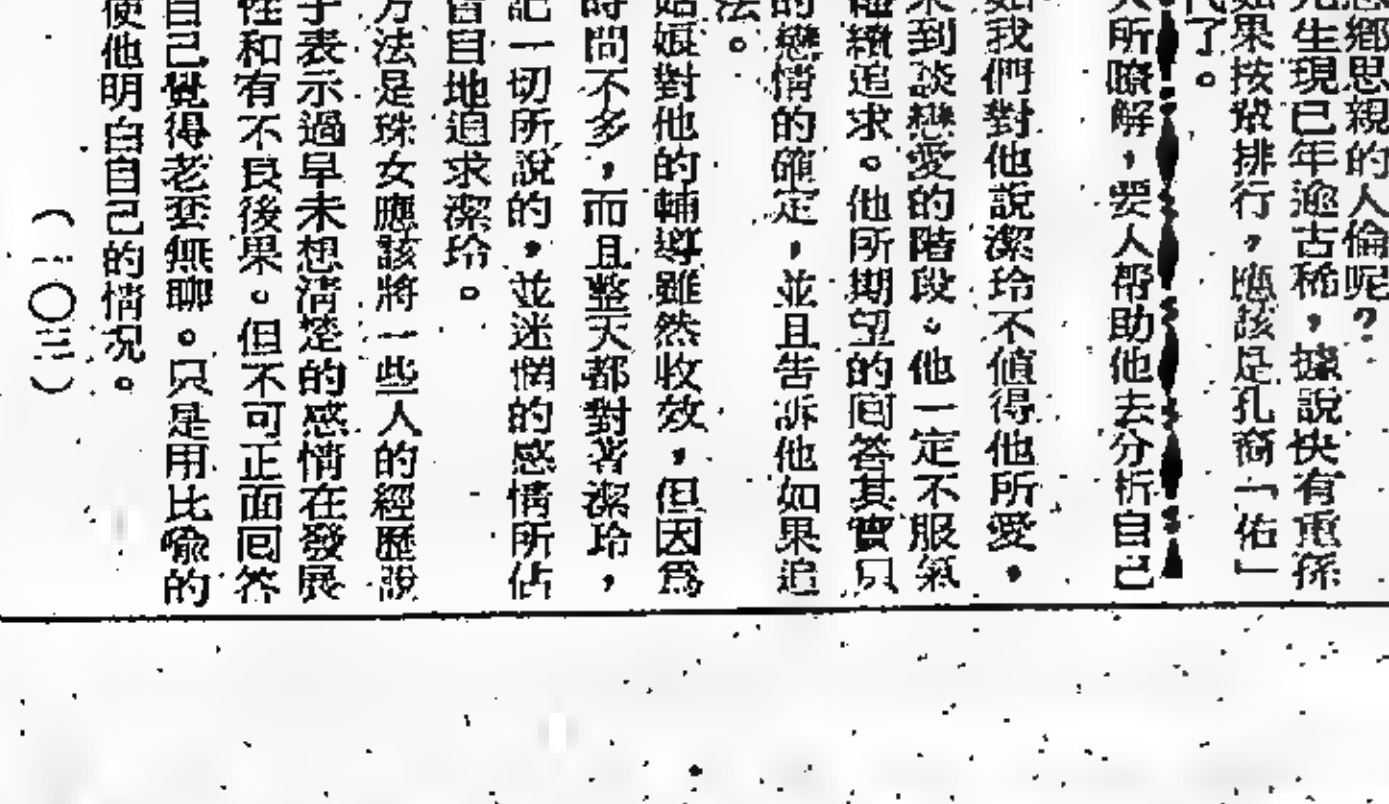 思鄉思親的人倫呢？
先生現已年逾古稀，據說快有重孫
如果按輩排行，應該是孔裔「佑」
代了。
人所瞭解，要人帮助他去分析自己
如我們對他說潔玲不值得他所愛，
未到談戀愛的階段。他一定不服氣
繼續追求。他所期望的囘答其實只
的戀情的確定，並且告訴他如果追
法。
姑娘對他的輔導雖然收效，但因爲
時間不多，而且整天都對著潔玲，
記一切所說的，並迷惘的感情所佔
盲目地追求潔玲。
方法是珠女應該將一些人的經歷說
子表示過早未想清楚的感情在發展
性和有不良後果。但不可正面囘答
自己覺得老套無聊。只是用比喩的
使他明白自己的情况。
（一〇三）